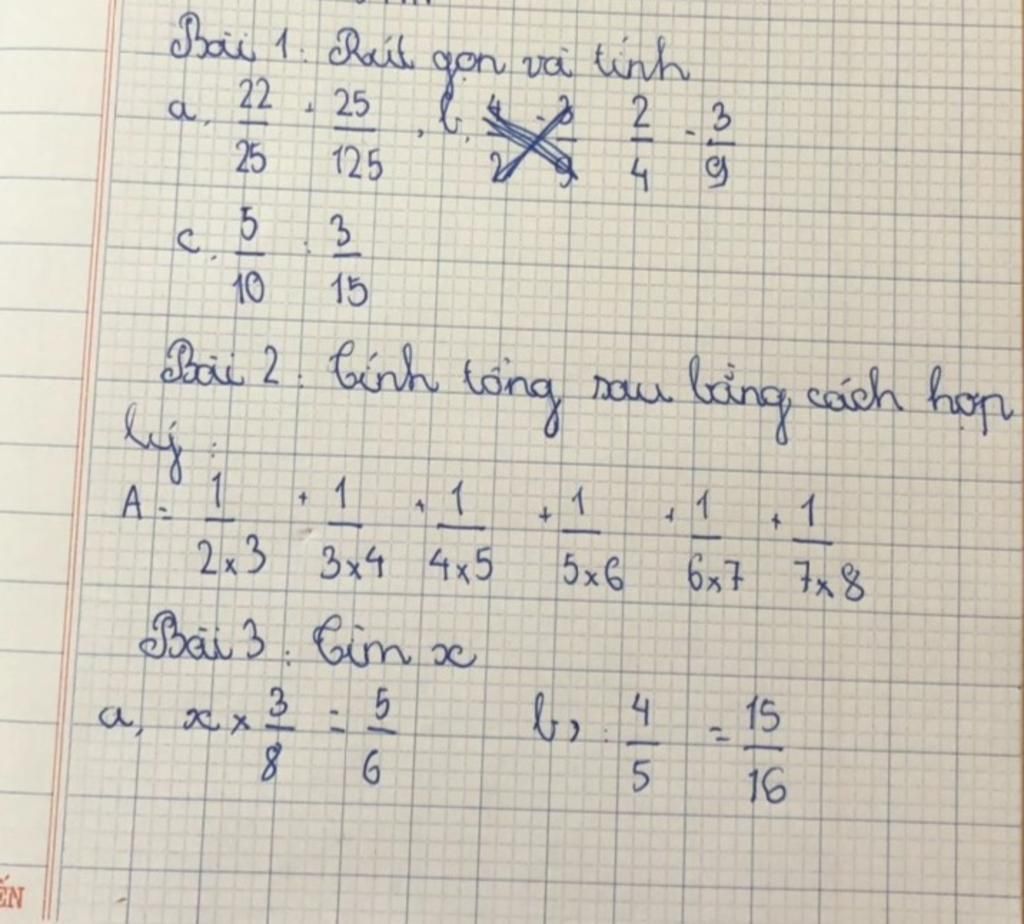 Bài 1: Rút gọn và tính
a, 22/25 + 25/125, b, 2/4 - 3/9
c. 5/10 : 3/15
Bài 2: Tính tổng sau bằng cách hợp
lý:
A = 1/2×3 + 1/3×4 + 1/4×5 + 1/5×6 + 1/6×7 + 1/7×8
Bài 3: Tìm x
a, x × 3/8 = 5/6 b, : 4/5 = 15/16
ẾN